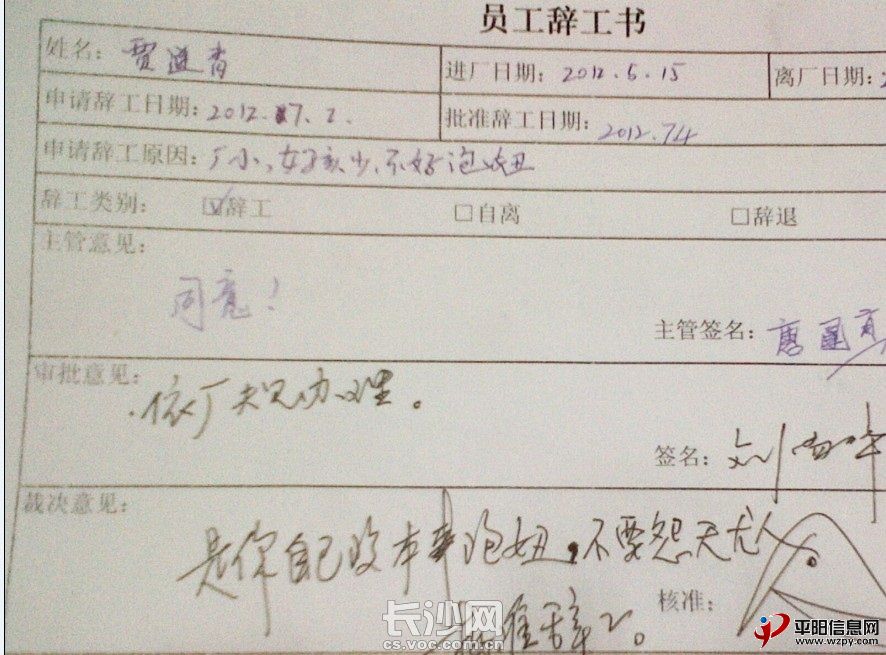 员工辞工书
姓名：贾道青 进厂日期：2012.6.15 离厂日期：2
申请辞工日期：2012.7.2. 批准辞工日期：2012.7.4
申请辞工原因：厂小、女孩少、不好泡妞
辞工类别： ☑辞工 □自离 □辞退
主管意见：
同意！
主管签名：唐
审批意见：
依厂规办理。
签名：刘
裁决意见：
是你自己没本事泡妞，不要怨天尤人
核准：
批准辞工。
长沙网
cs.voc.com.cn
平阳信息网
www.wzpy.com